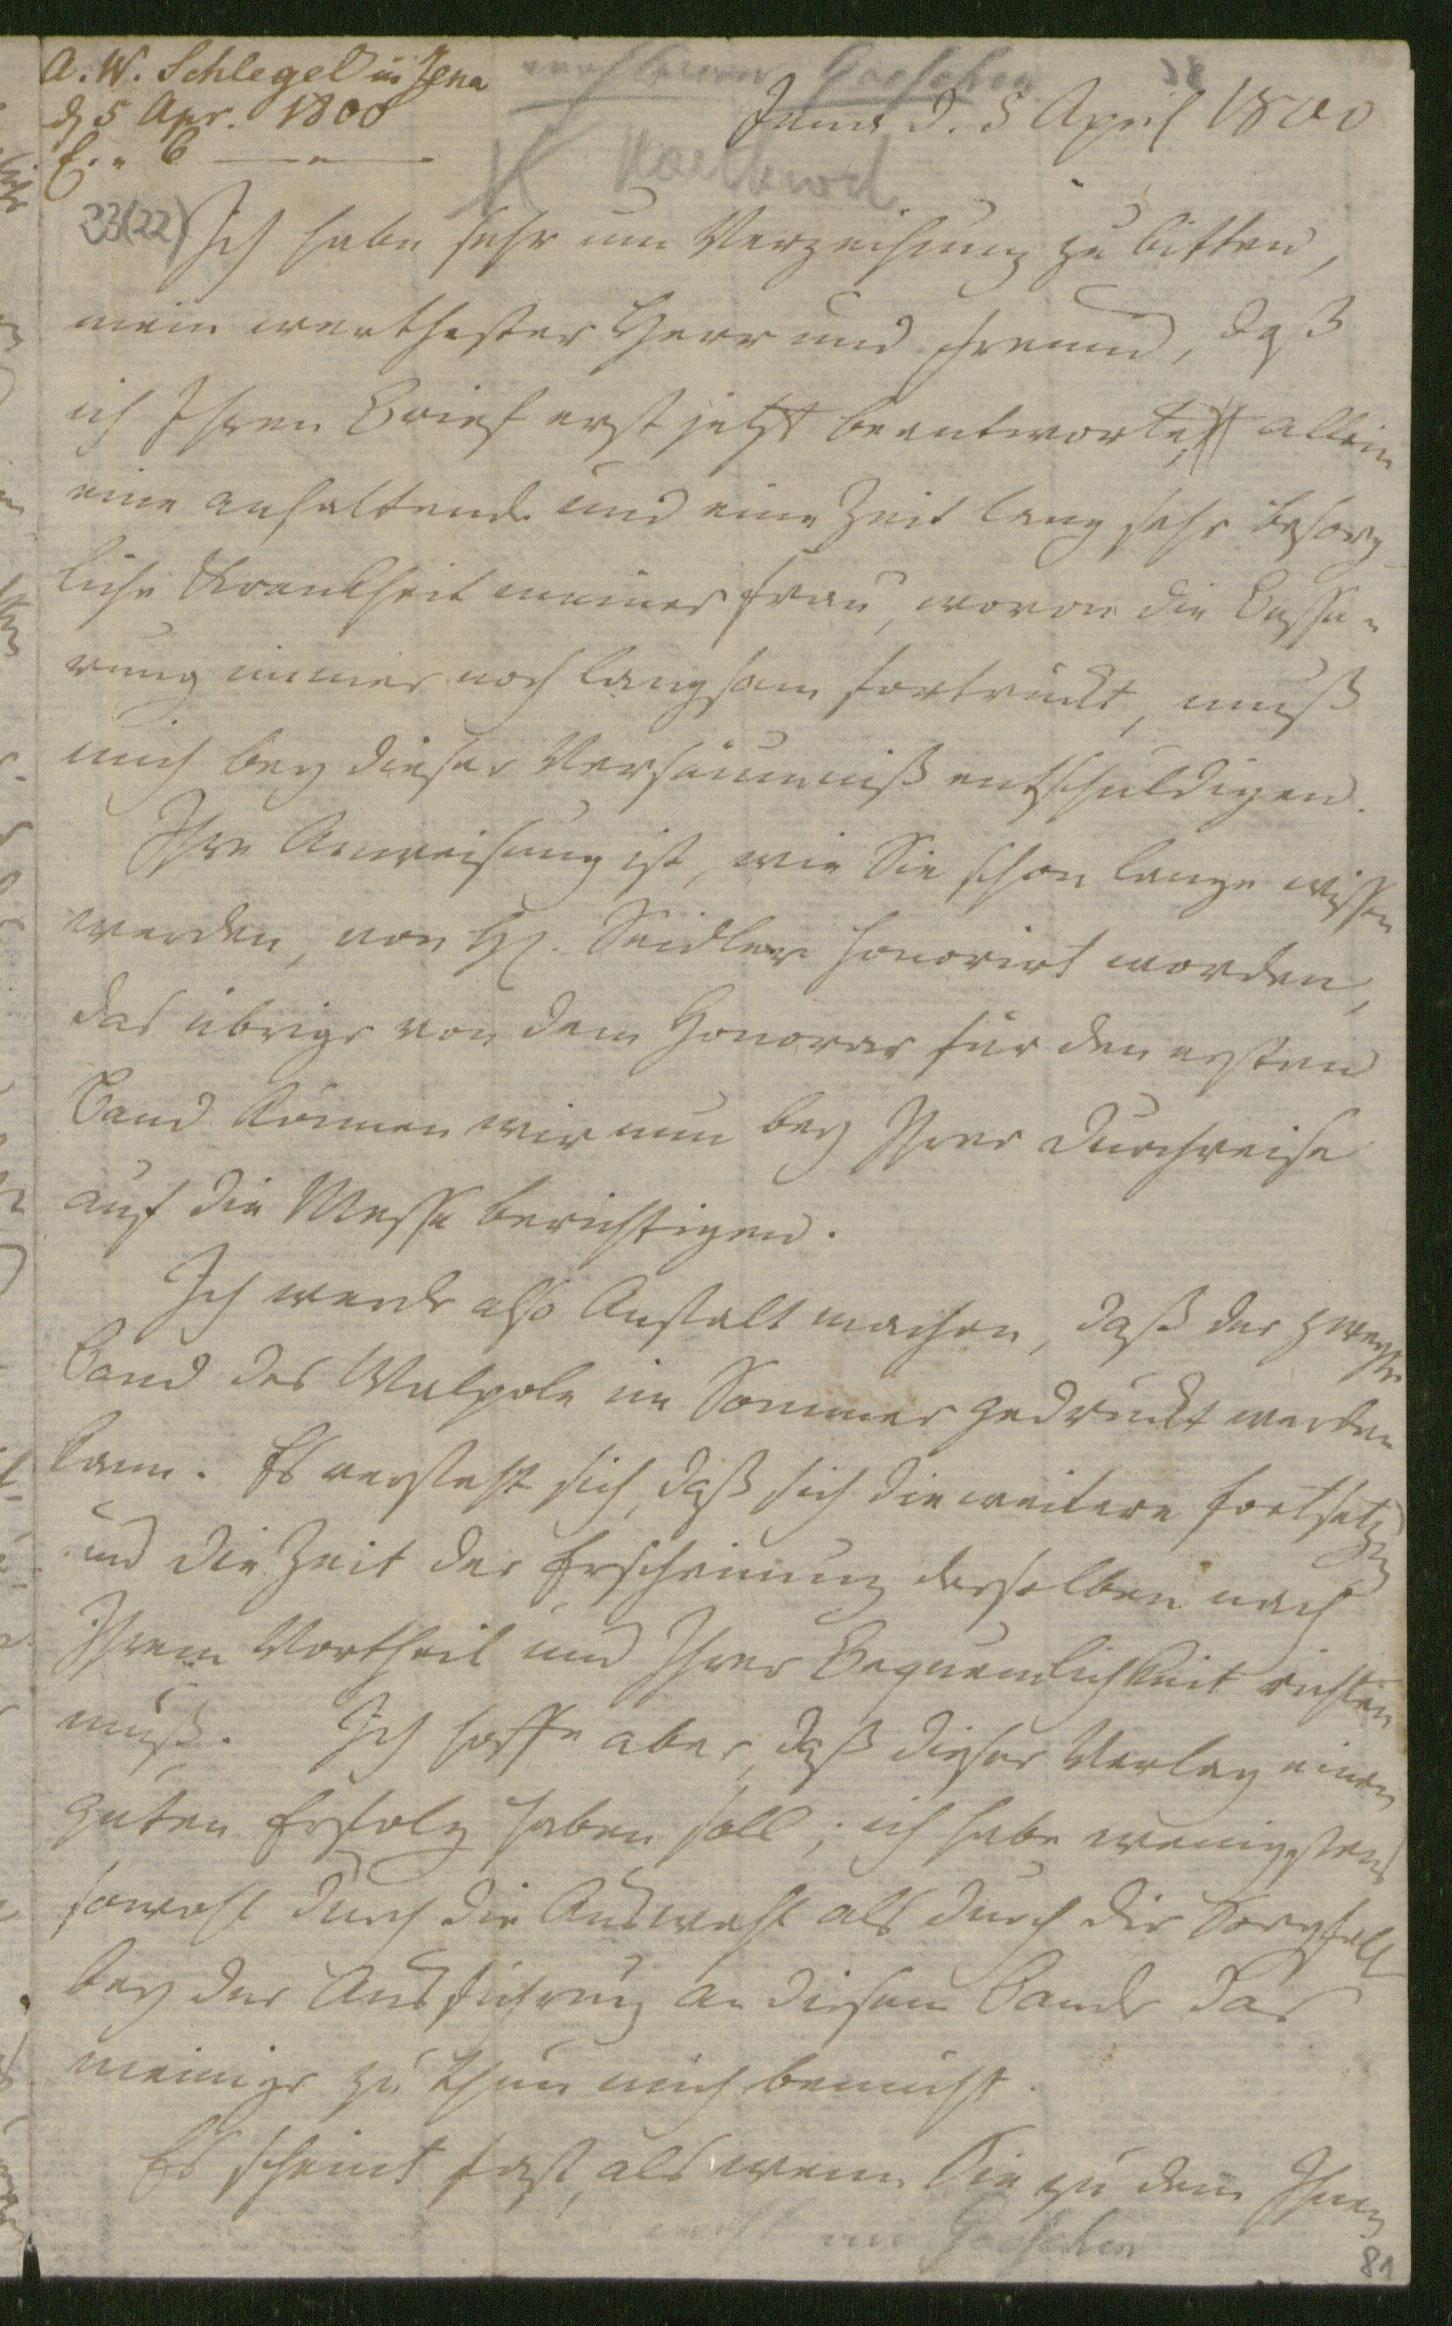 A. W. Schlegel in Jena
d 5 Apr. 1800
E. " 6 — " —
Goeschen
Jena d. 5 April 1800
Hartknoch
23(22)
Ich habe sehr um Verzeihung zu bitten,
mein werthester Herr und Freund, daß
ich Ihren Brief erst jetzt beantworte; allein
eine anhaltende und eine Zeit lang sehr besorg-
liche Krankheit meiner Frau, wovon die Besse-
rung immer noch langsam fortrückt, muß
mich bey dieser Versäumniß entschuldigen.
Ihre Anweisung ist, wie Sie schon lange wissen
werden, von H. Seidler honorirt worden,
das übrige von dem Honorar für den ersten
Band können wir nun bey Ihrer Durchreise
auf die Messe berichtigen.
Ich werde also Anstalt machen, daß der zweyte
Band des Walpole im Sommer gedruckt werden
kann. Es versteht sich, daß sich die weitere Fortsetzung
und die Zeit der Erscheinung derselben nach
Ihrem Vortheil und Ihrer Bequemlichkeit richten
muß. Ich hoffe aber, daß dieser Verlag einen
guten Erfolg haben soll; ich habe wenigstens
sowohl durch die Auswahl als durch die Sorgfalt
bey der Ausführung an diesem Bande das
meinige zu thun mich bemüht.
Es scheint fast, als wenn Sie zu dem Ihnen
an Goeschen
81